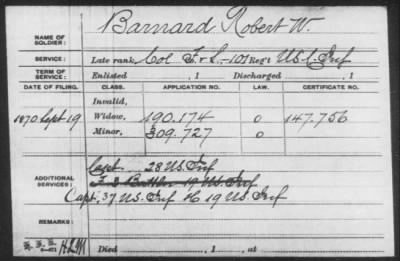 Barnard Robert W.
NAME OF SOLDIER:
SERVICE: Late rank, Col F & S.-101 Reg't US C. Inf
TERM OF SERVICE: Enlisted , 1 Discharged , 1
DATE OF FILING. CLASS. APPLICATION NO. LAW. CERTIFICATE NO.
Invalid,
1870 Sept 19 Widow, 190.174 o 147.756
Minor, 309.727 o
ADDITIONAL SERVICES: Capt. 28 US. Inf
19 US. Inf
Capt. 37 U.S. Inf H 19 U.S. Inf
REMARKS:
Died , 1 , at